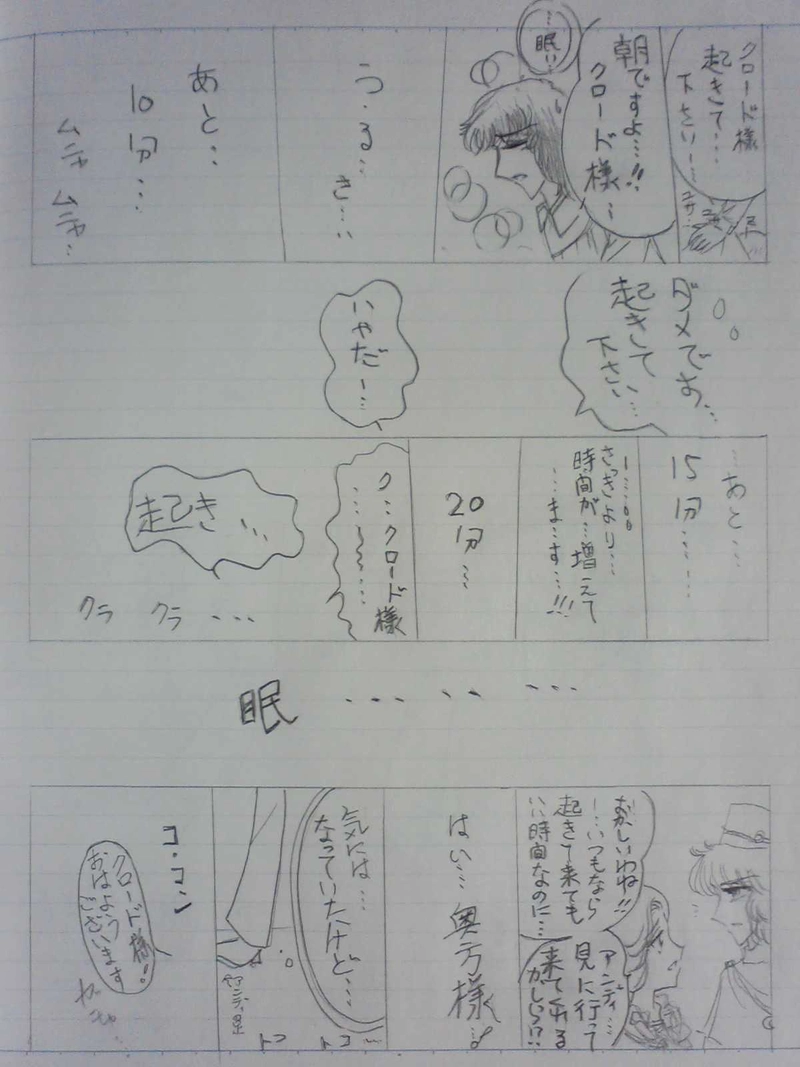 クロード様
起きて‥‥
下さい‥‥
ユサ
ユサ
朝ですよ‥‥!!
クロード様‥
‥眠い‥
う・る‥
さ‥‥
あと‥
10分‥‥
ムニャ ムニャ‥
ダメですよ‥
起きて
下さい‥‥
いやだー‥‥
‥‥あと‥‥
15分‥‥‥
さっきより‥‥
時間が‥増えて
‥‥ま‥す‥‥!!!
20
分‥‥
ク‥‥クロード様
起き‥‥
クラ クラ‥‥
眠‥‥‥‥‥‥
おかしいわね!!
‥‥いつもなら
起きて来ても
いい時間なのに‥‥
アンディ‥‥
見に行って
来てくれる
かしら!?
はい‥‥奥方様‥‥
気には‥‥
なっていたけど‥‥
アンディ
トコ
トコ‥‥
コ・コン
クロード様!
おはよう
ございます